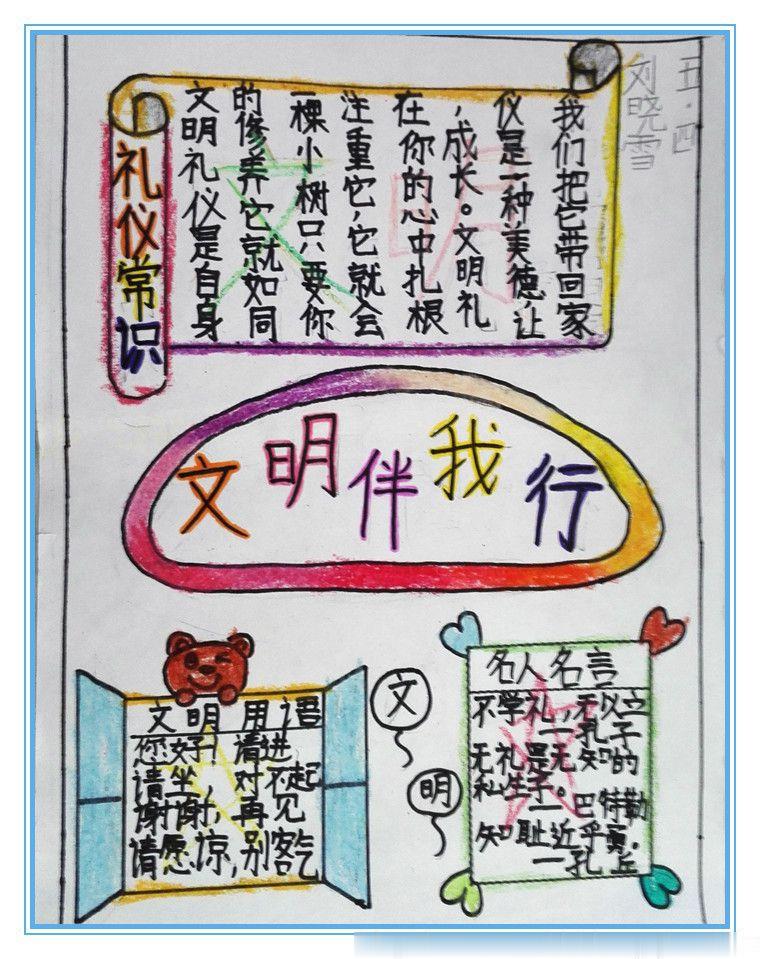 五·四
刘晓雪
礼仪常识
文明礼仪是自身
的修养它就如同
一棵小树只要你
注重它,它就会
在你的心中扎根
,成长。文明礼
仪是一种美德,让
我们把它带回家
文明
文明伴我行
文明用语
您好!请进
请坐,对不起
谢谢,再见
请愿谅,别客气
文
明
名人名言
不学礼,无以立
—孔子
无礼是无知的
私生子。
—巴特勒
知耻近乎勇.
—孔丘